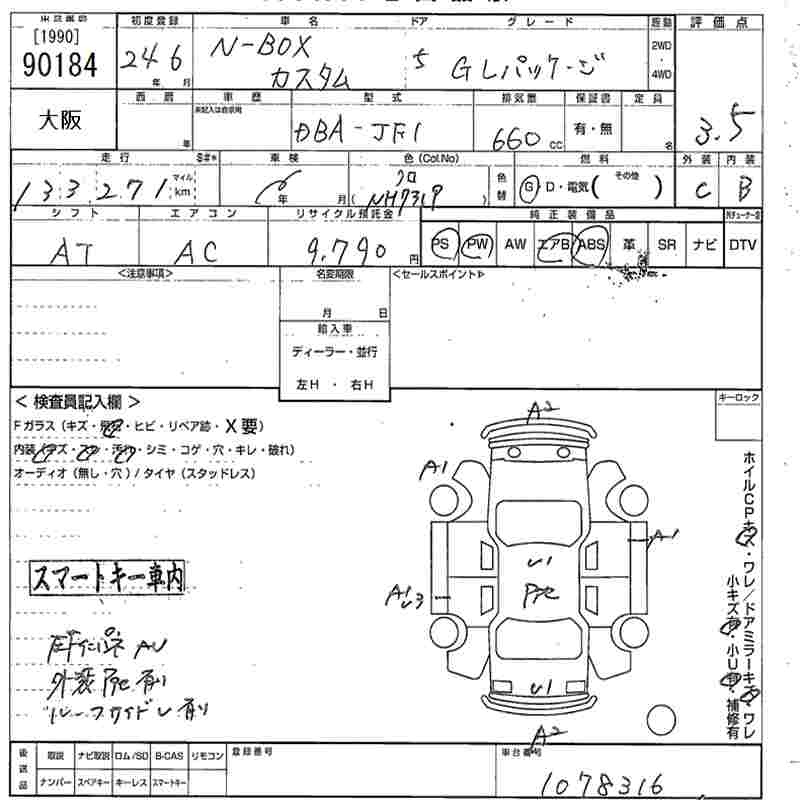 [1990]
90184
大阪
初度登録 車名 ドア グレード 駆動 評価点
24 6 年 月
N-BOX
カスタム
5 GLパッケージ
2WD
・
4WD
3.5
西暦 車歴 型式 排気量 保証書 定員
未記入は自家用
年 DBA-JF1 660 cc 有・無 名
走行 S#* 車検 色(Col.No) 燃料 外装 内装
133,271 マイル km 年 月 クロ ( NH731P ) 色替 G D・電気( その他 ) C B
シフト エアコン リサイクル預託金 純正装備品
AT AC 9,790 円 PS PW AW エアB ABS 革 SR ナビ DTV
<注意事項> 名変期限 <セールスポイント>
月 日
輸入車
ディーラー・並行
左H ・ 右H
< 検査員記入欄 > キーロック
Fガラス(キズ・飛石・ヒビ・リペア跡・X要)
内装(キズ・スレ・汚れ・シミ・コゲ・穴・キレ・破れ)
オーディオ(無し・穴)/タイヤ(スタッドレス)
A2
A1
A1
U1
A1
U3
U1
A2
ホイルCPキズ・ワレ/ドアミラーキズ・ワレ
小キズ有・小U有・補修有
スマートキー車内
外装 有り
有り
後送品 取説 ナビ取説 ロム/SD B-CAS リモコン 登録番号 車台番号
ナンバー スペアキー キーレス スマートキー
1078316